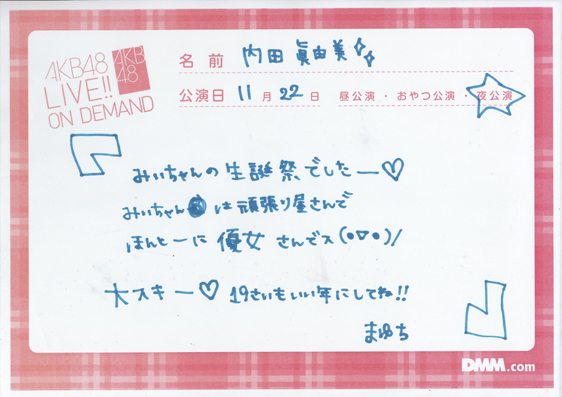 AKB48
LIVE!!
ON DEMAND
AKB
48
名前 内田眞由美
公演日 11月22日 昼公演・おやつ公演・夜公演
みぃちゃんの生誕祭でしたー♡
みぃちゃんは頑張り屋さんで
ほんとーに優女さんでス(•▽•)/
大スキー♡ 19さいもいい年にしてね!!
まゆち
DMM.com